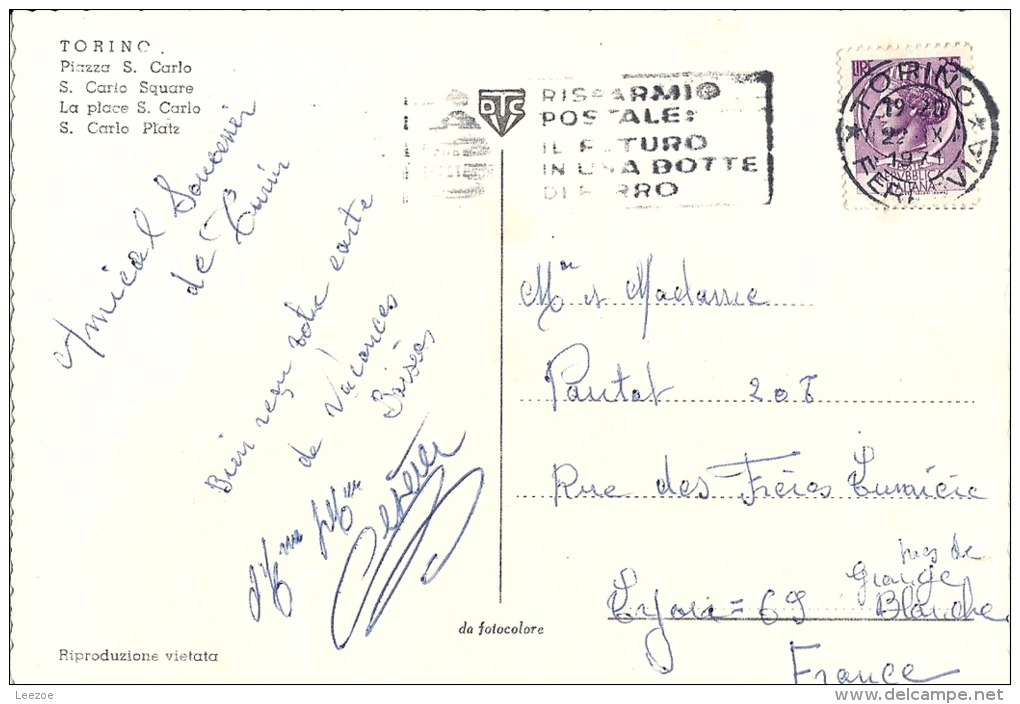 TORINO.
Piazza S. Carlo
S. Carlo Square
La place S. Carlo
S. Carlo Platz
OTC
RISPARMIO
POSTALE:
IL FUTURO
IN UNA BOTTE
DI FERRO
LIRE 35
TORINO
19-20
1971
FERROVIA
REPVBBLICA
ITALIANA
Amical Souvenir
de Turin
Bien reçu votre carte
de Vacances
Baisers
Mr et Madame
Pautot 208
Rue des Frères Lumière
près de
Grange
Lyon = 69 Blanche
France
da fotocolore
Riproduzione vietata
Leezoe
www.delcampe.net